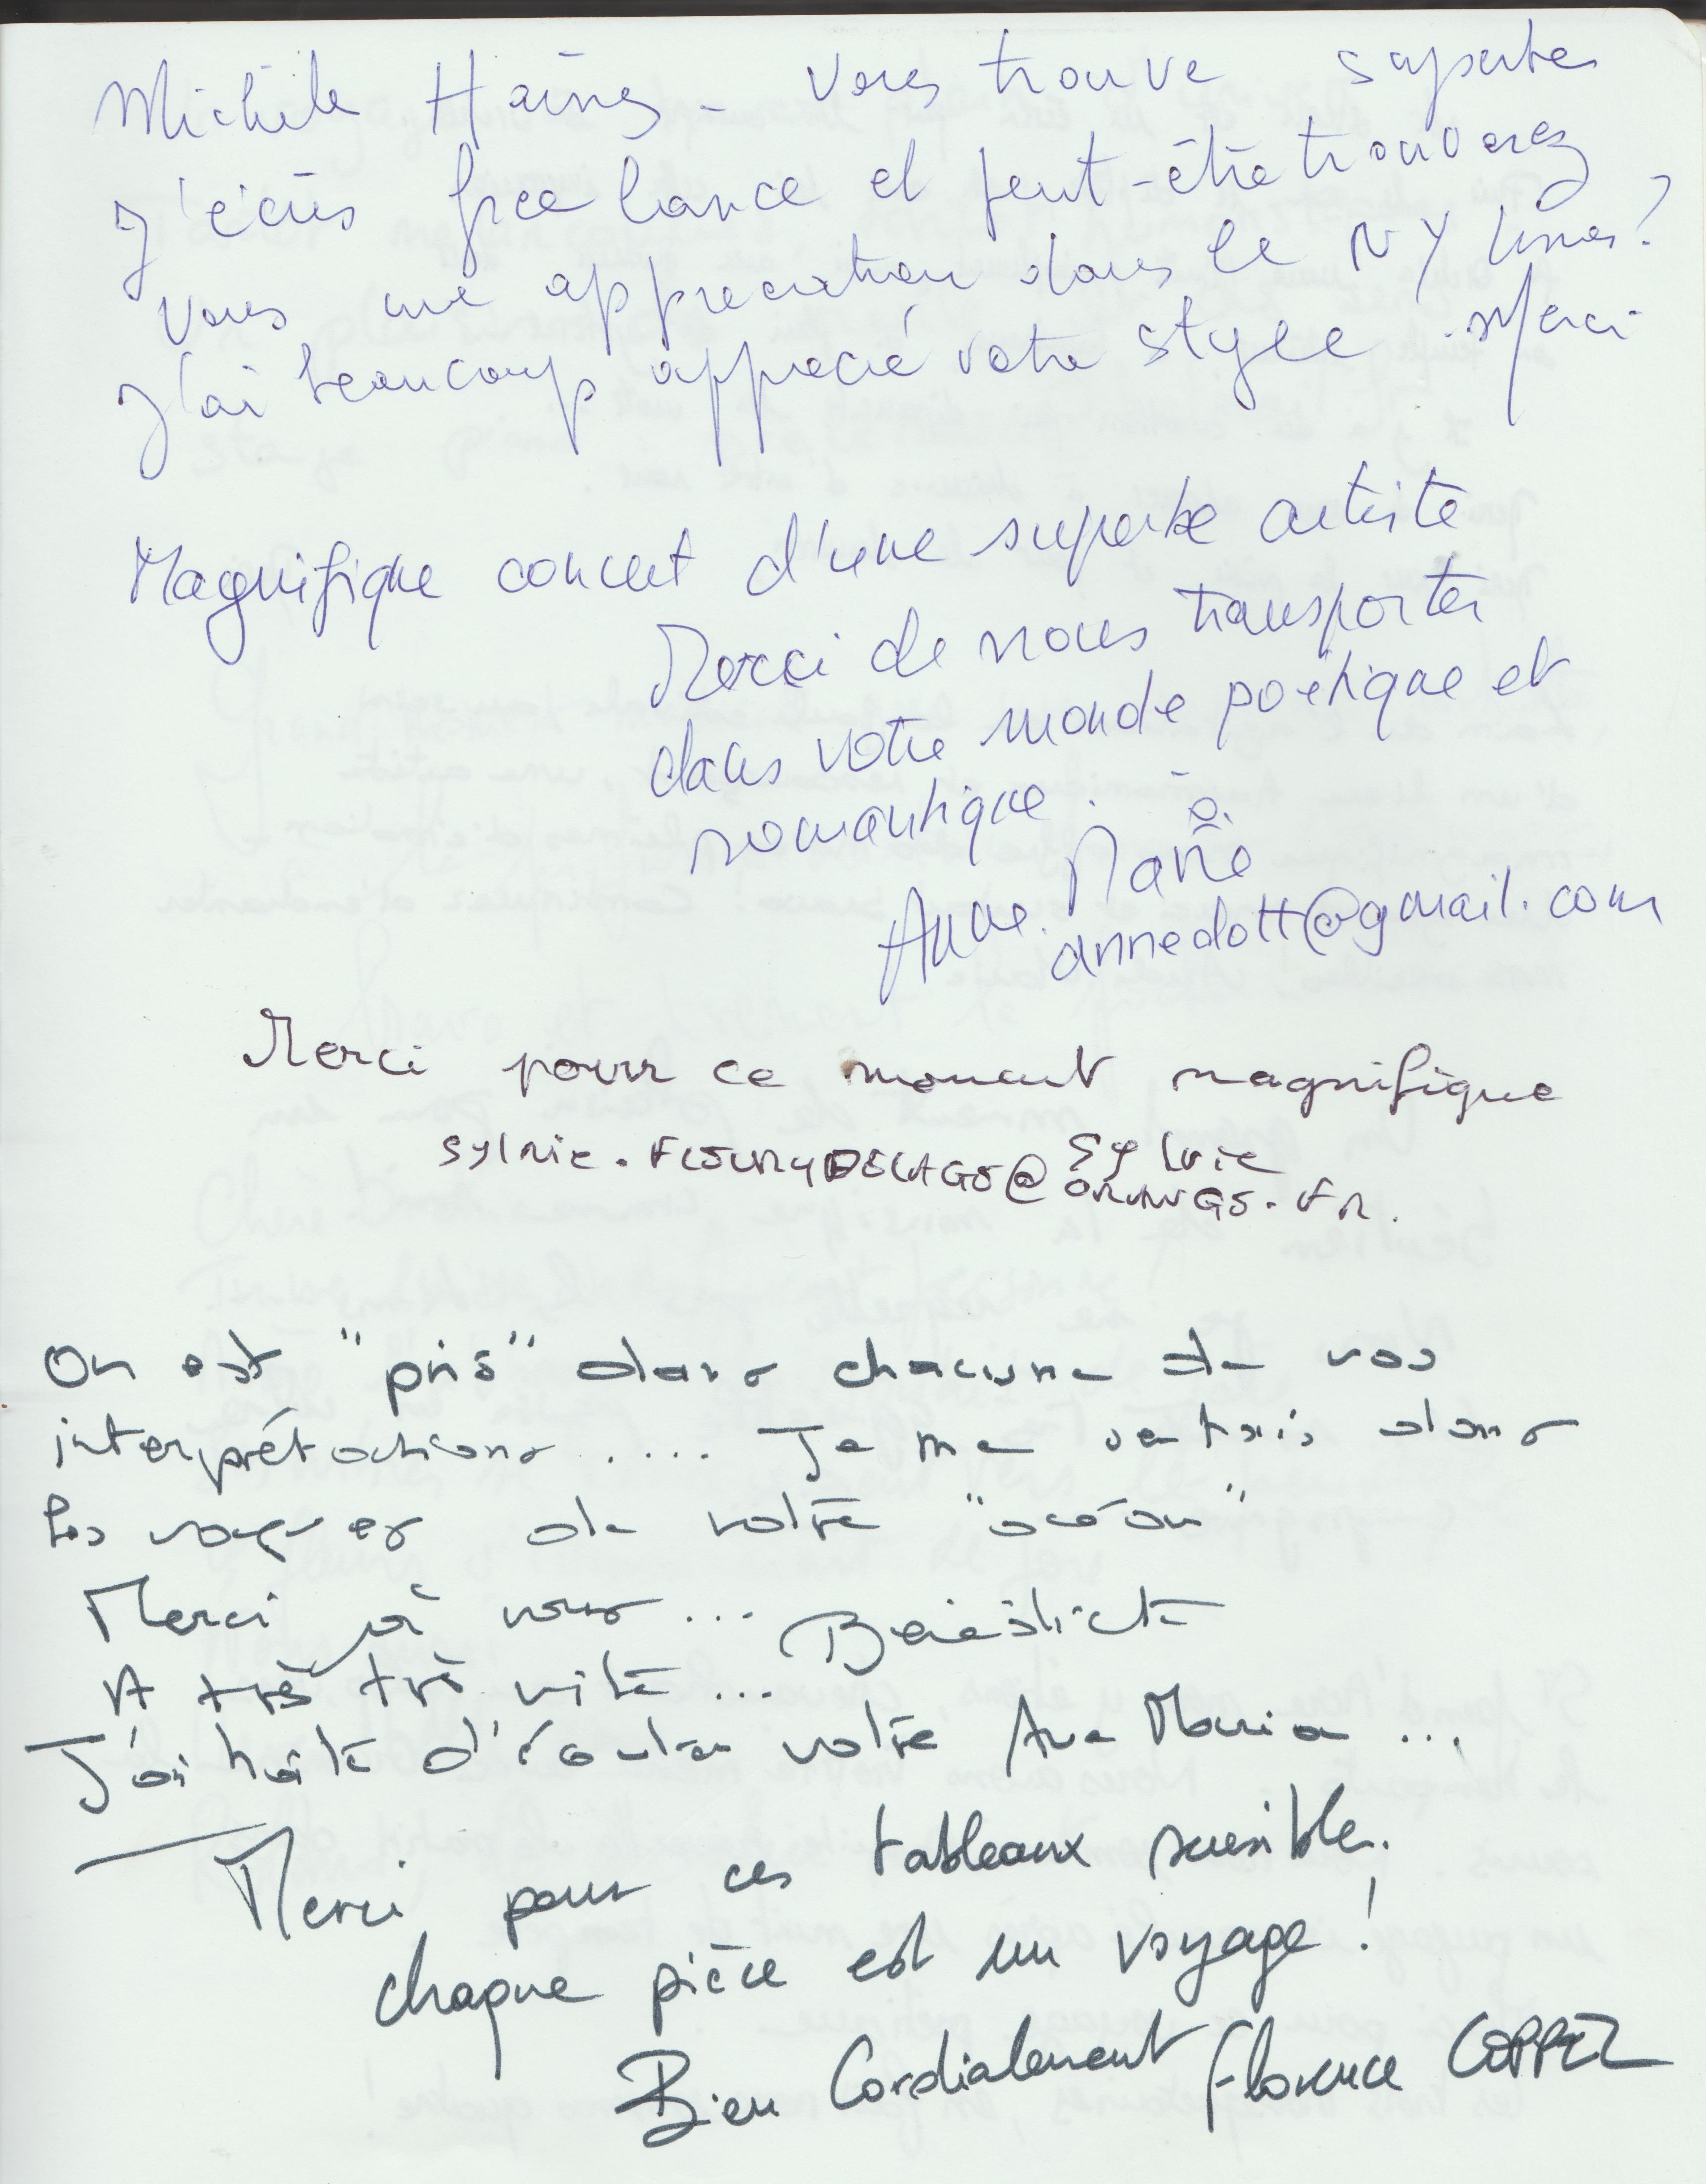 Michèle Haines - vous trouve superbe
J'écris free lance et peut-être trouverez
vous une appreciation dans le NY times?
J'ai beaucoup apprécié votre style. Merci
Magnifique concert d'une superbe artiste
Merci de nous transporter
dans votre monde poétique et
romantique.
Anne. Marie
annedott@gmail.com
Merci pour ce moment magnifique
Sylvie
sylvie.FLEURYDELAGE@ORANGE.FR.
On est "pris" dans chacune de vos
interprétations .... Je me sentais dans
les vagues de votre "océan"
Merci à vous ... Bénédicte
A très très vite ...
J'ai hâte d'écouter votre Ave Maria ...
Merci pour ces tableaux sensibles.
chaque pièce est un voyage!
Bien Cordialement Florence COPPEZ